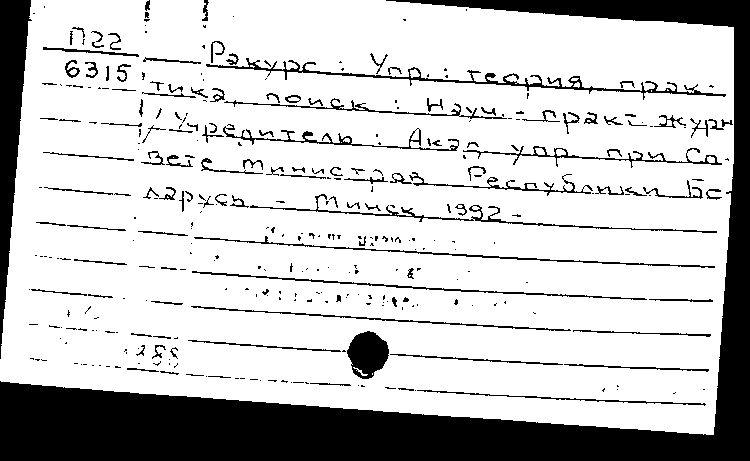 П22
6315
Ракурс : Упр. : теория, прак-
тика, поиск : Науч. - практ журн
/ Учредитель : Акад упр при Со-
вете министров Республики Бе-
ларусь. - Минск, 1992 -
288